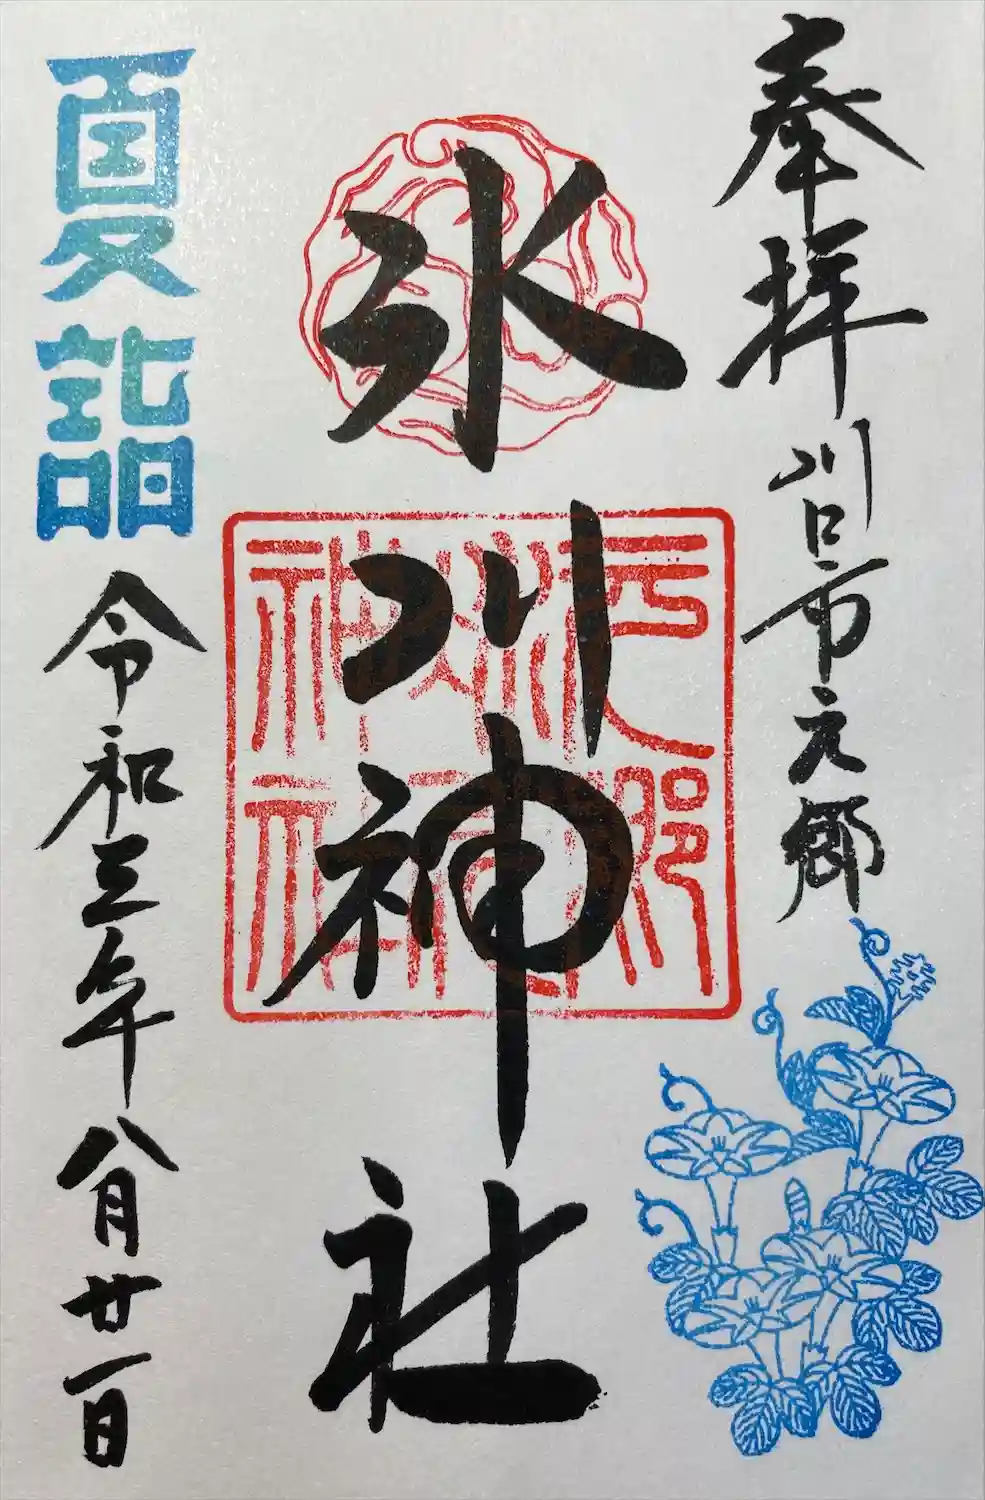 奉拝
川口市元郷
氷川神社
元郷
氷川
神社
夏詣
令和三年八月廿一日